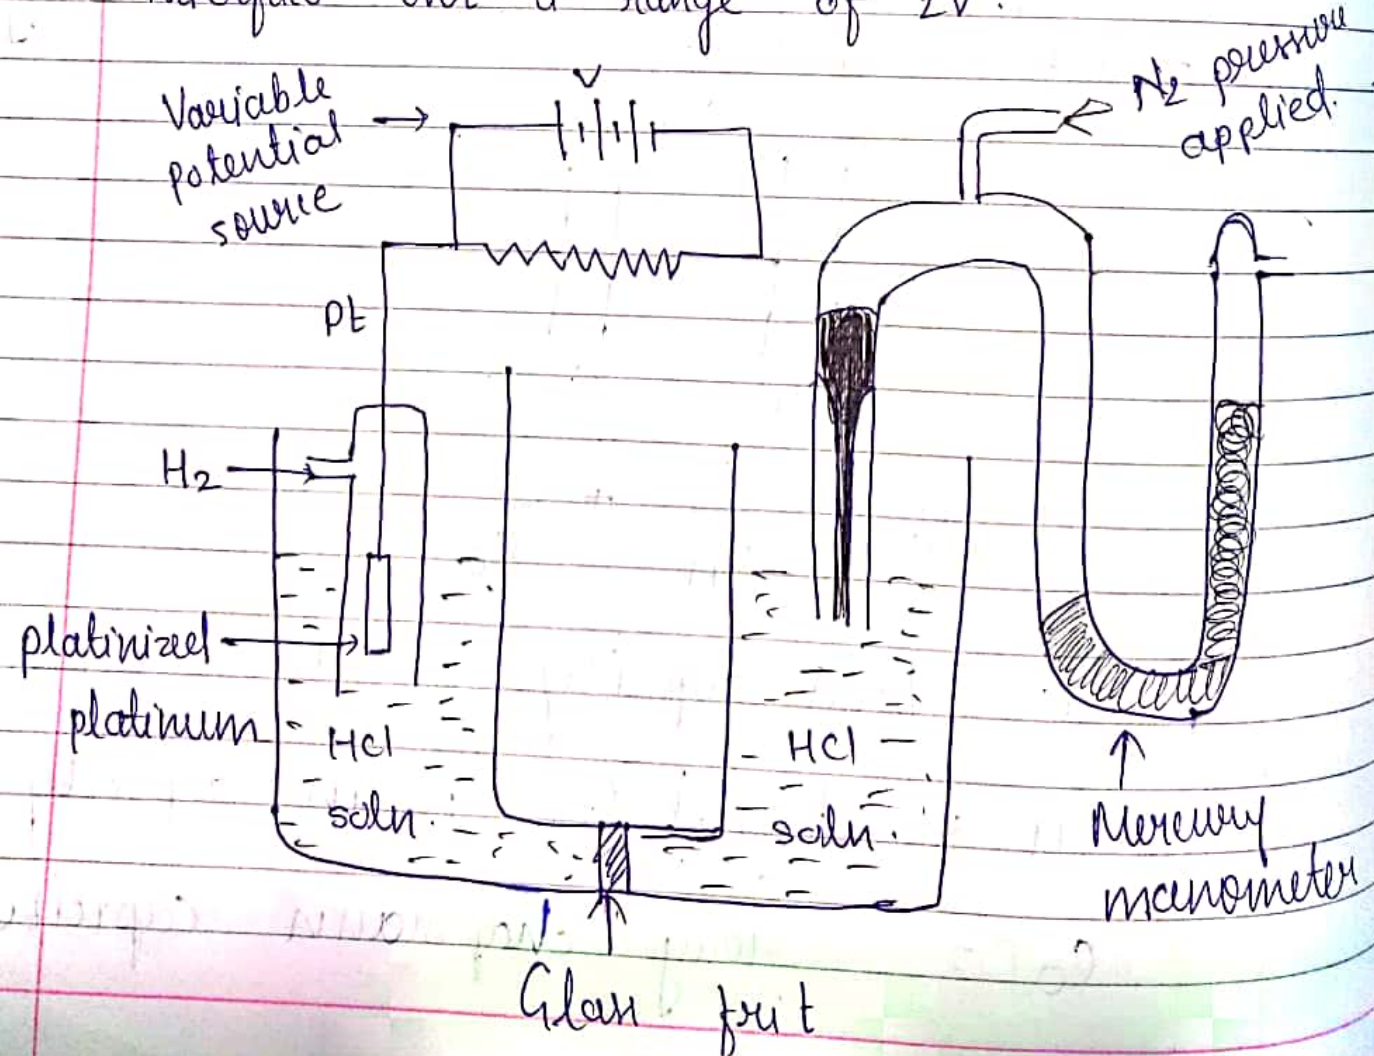 over a range of 2V.
V
Variable
potential
source
N2 pressure
applied.
Pt
H2
platinized
platinum
HCl
soln.
HCl
soln.
Mercury
manometer
Glass frit